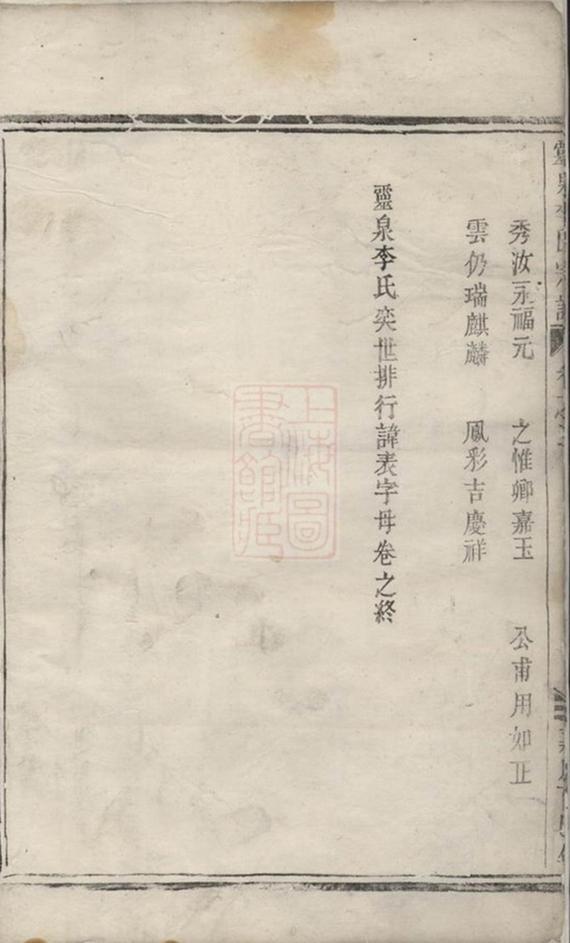 秀汝永福元　之惟卿嘉玉　公甫用如正
雲仍瑞麒麟　鳳彩吉慶祥
靈泉李氏奕世排行諱表字母卷之終
上海圖書館藏